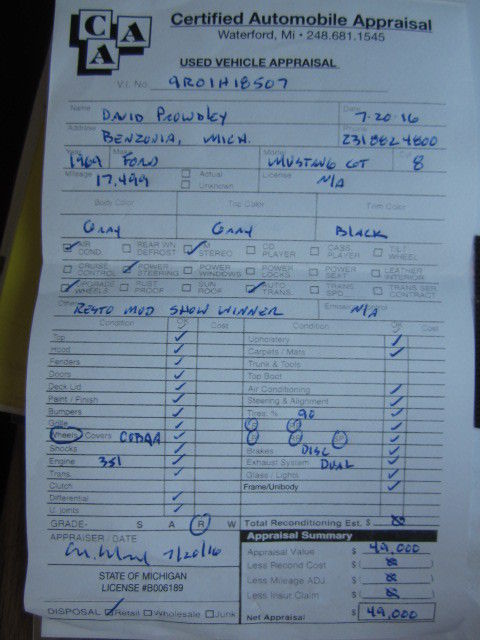 CAA
Certified Automobile Appraisal
Waterford, Mi • 248.681.1545
USED VEHICLE APPRAISAL
V.I. No. 9R01H18507
Name DAVID PROWDLEY Date 7-20-16
Address BENZONIA, MICH. Phone 231 882 4800
Year 1969 Make FORD Model MUSTANG GT 8
Mileage 17,499 Actual Unknown License N/A
Body Color Top Color Trim Color
GRAY GRAY BLACK
AIR COND. REAR WN DEFROST STEREO CD PLAYER CASS. PLAYER TILT WHEEL
CRUISE CONTROL POWER STEERING POWER WINDOWS POWER LOCKS POWER SEAT LEATHER INTERIOR
UPGRADE WHEELS RUST PROOF SUN ROOF AUTO TRANS. TRANS SPD. TRANS SER. CONTRACT
Other RESTO MOD SHOW WINNER N/A
Condition OK Cost Condition OK Cost
Top Upholstery
Hood Carpets / Mats
Fenders Trunk & Tools
Doors Top Boot
Deck Lid Air Conditioning
Paint / Finish Steering & Alignment
Bumpers Tires: % 90
Grille
Wheels Covers COBRA
Shocks Brakes DISC
Engine 351 Exhaust System DUAL
Trans. Glass / Lights
Clutch Frame/Unibody
Differential
U. joints
GRADE- S A R W Total Reconditioning Est. $
APPRAISER / DATE Appraisal Summary
7/20/16 Appraisal Value $ 49,000
Less Recond Cost $
STATE OF MICHIGAN Less Mileage ADJ $
LICENSE #B006189 Less Insur Claim $
DISPOSAL Retail Wholesale Junk Net Appraisal $ 49,000